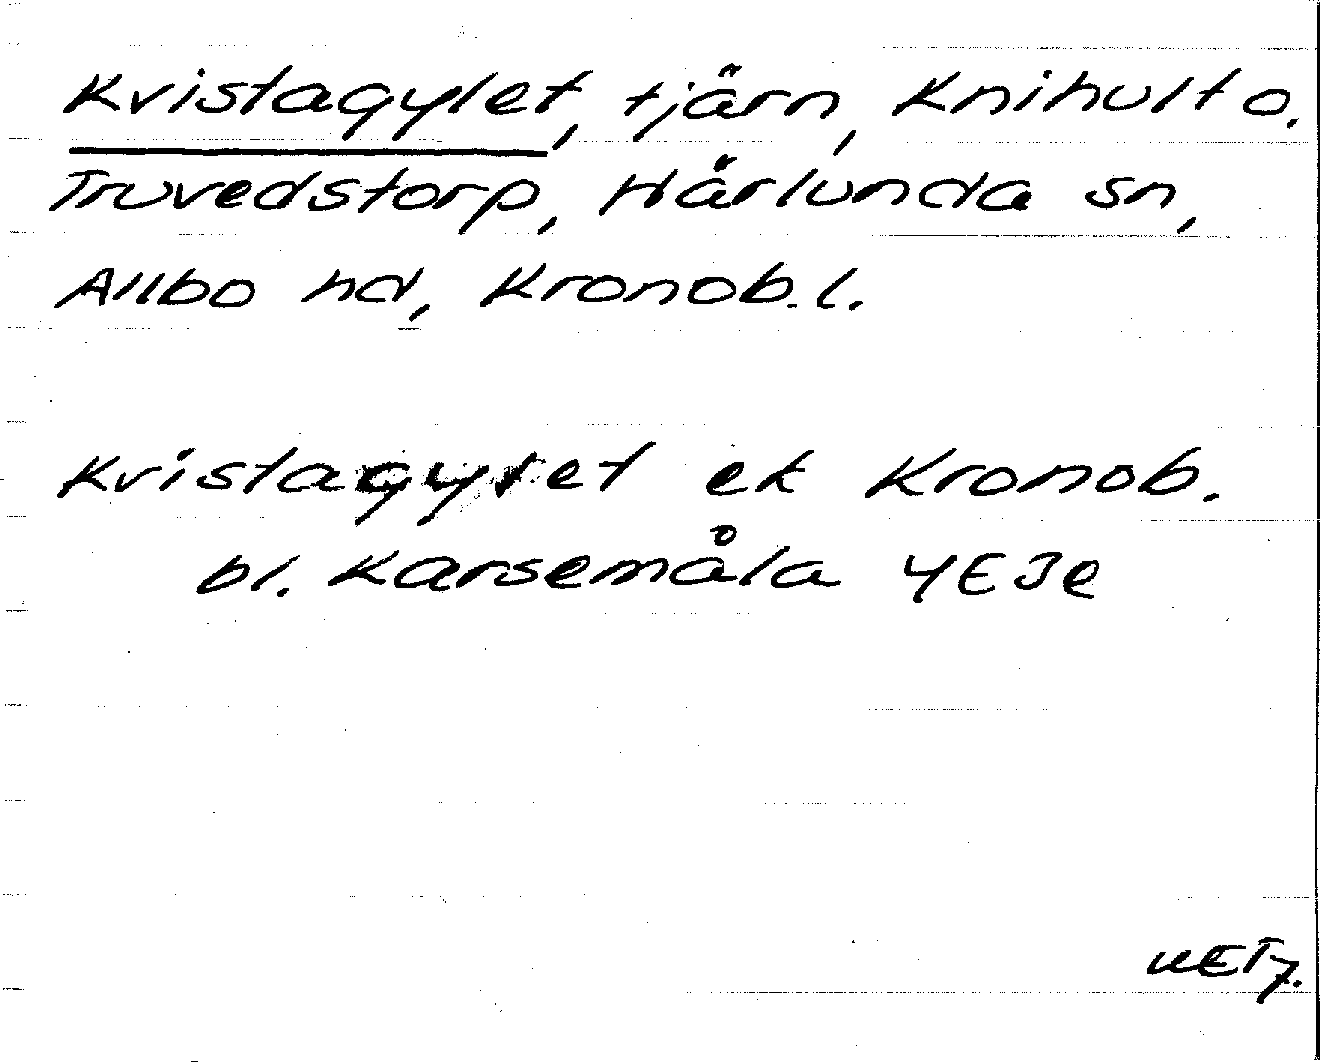 Kvistagylet, tjärn, Knihult o.
Truvedstorp, Hårlunda sn,
Allbo hd, Kronob. l.
Kvistagylet ek Kronob.
bl. Karsemåla 4E3e